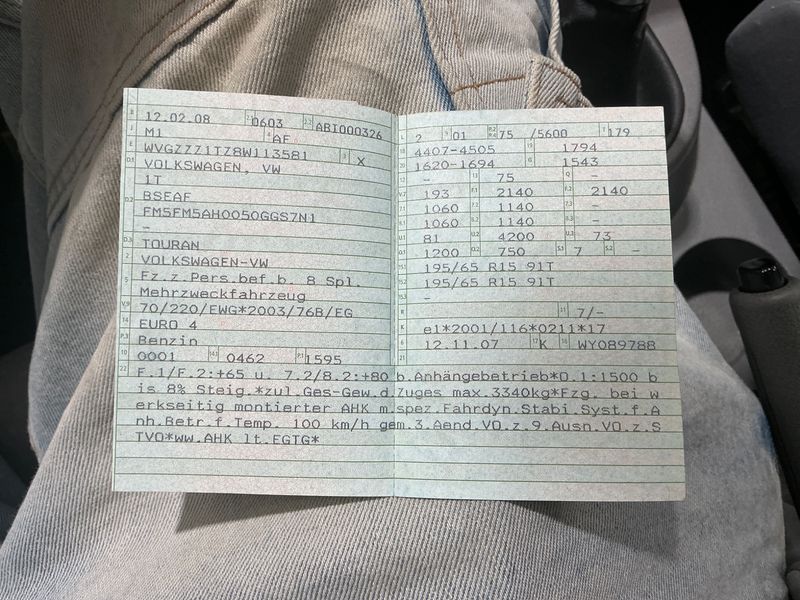 B 12.02.08 2.1 0603 2.2 ABI000326
J M1 4 AF
E WVGZZZ1TZ8W113581 3 X
D.1 VOLKSWAGEN, VW
1T
D.2 BSEAF
FM5FM5AH0050GGS7N1
-
D.3 TOURAN
2 VOLKSWAGEN-VW
5 Fz.z.Pers.bef.b. 8 Spl.
Mehrzweckfahrzeug
V.9 70/220/EWG*2003/76B/EG
14 EURO 4
P.3 Benzin
10 0001 14.1 0462 P.1 1595
L 2 9 01 P.2 P.4 75 /5600 T 179
18 4407-4505 19 1794
20 1620-1694 G 1543
12 - 13 75 Q -
V.7 193 F.1 2140 F.2 2140
7.1 1060 7.2 1140 7.3 -
8.1 1060 8.2 1140 8.3 -
U.1 81 U.2 4200 U.3 73
O.1 1200 O.2 750 S.1 7 S.2 -
15.1 195/65 R15 91T
15.2 195/65 R15 91T
15.3 -
R 11 7/-
K e1*2001/116*0211*17
6 12.11.07 17 K 16 WY089788
21
22 F.1/F.2:+65 u. 7.2/8.2:+80 b.Anhängebetrieb*O.1:1500 b
is 8% Steig.*zul.Ges-Gew.d.Zuges max.3340kg*Fzg. bei w
erkseitig montierter AHK m.spez.Fahrdyn.Stabi.Syst.f.A
nh.Betr.f.Temp. 100 km/h gem.3.Aend.VO.z.9.Ausn.VO.z.S
TVO*ww.AHK lt.EGTG*